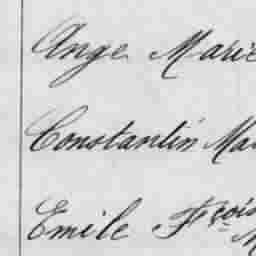 Ange Marie
Constantin Ma
Emile Fçois
M